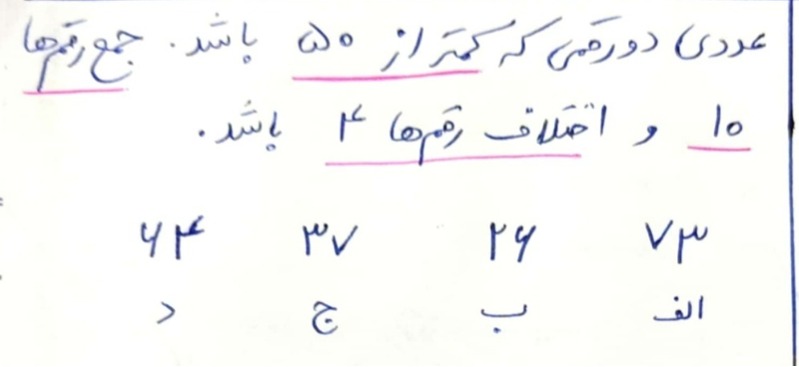 عددی دو رقمی که کمتر از ۵۰ باشد. جمع رقم‌ها
۱۰ و اختلاف رقم‌ها ۴ باشد.
۷۳ ۲۶ ۳۷ ۶۴
الف ب ج د